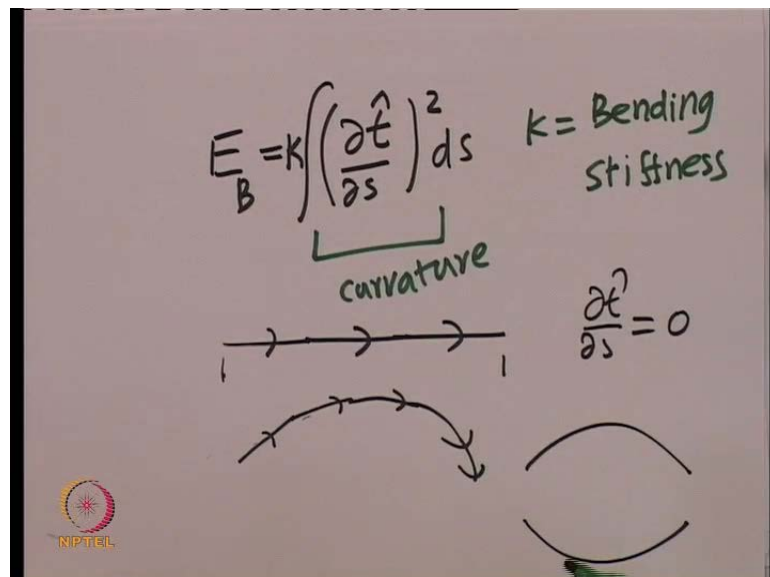 E_B = K ∫ (∂t̂/∂s)² ds
K = Bending
stiffness
curvature
∂t̂/∂s = 0
NPTEL